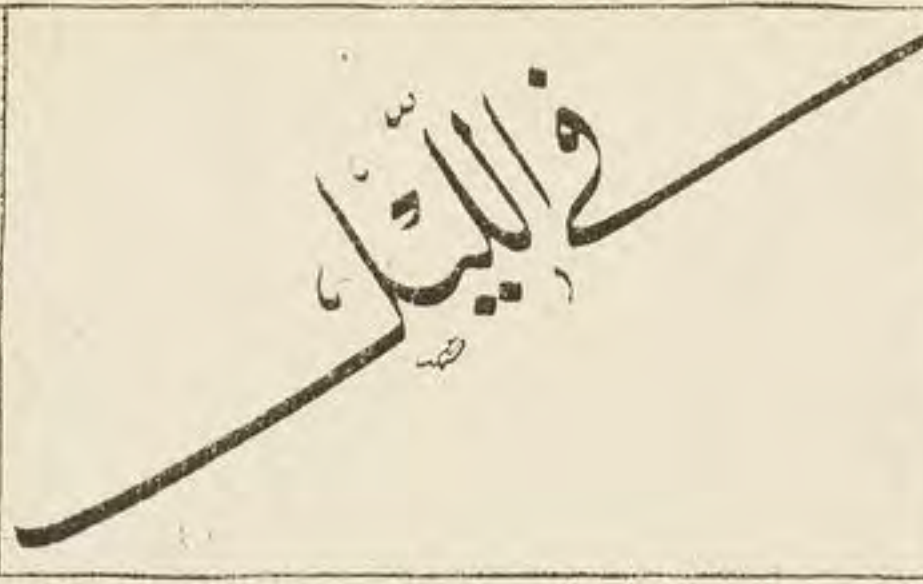 في اللّيل